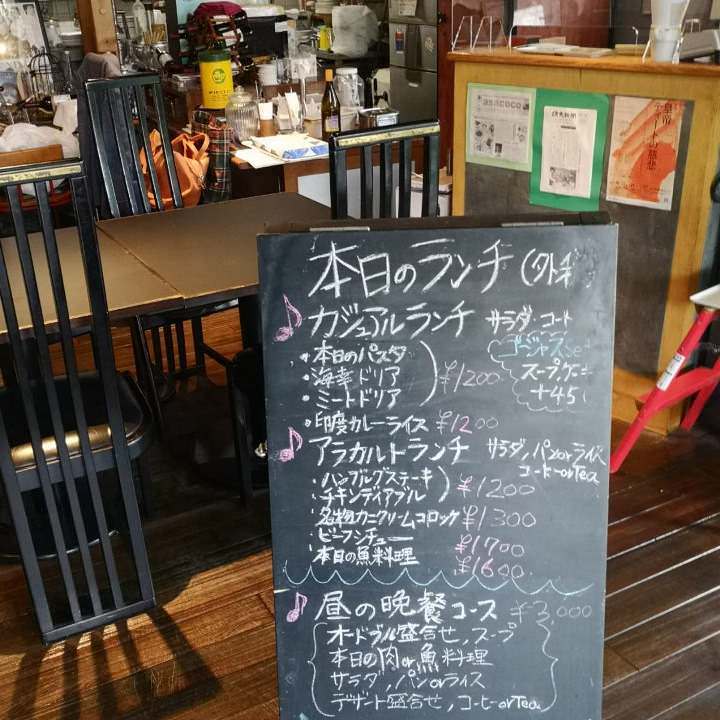 asacoco
読売新聞
皇帝
ティートの慈悲
本日のランチ
カジュアルランチ サラダ・コー
・本日のパスタ
・海幸ドリア
・ミートドリア
¥1200
ゴージャス
スープ
+45
・印度カレーライス ¥1200
アラカルトランチ サラダ,パンorライス
コーヒーorTea
・ハンブルグステーキ
・チキンディアブル
¥1200
・名物カニクリームコロッケ ¥1300
・ビーフシチュー ¥1700
・本日の魚料理 ¥1600
昼の晩餐コース ¥3,000
オードブル盛合せ,スープ
本日の肉or魚料理
サラダ,パンorライス
デザート盛合せ,コーヒーorTea